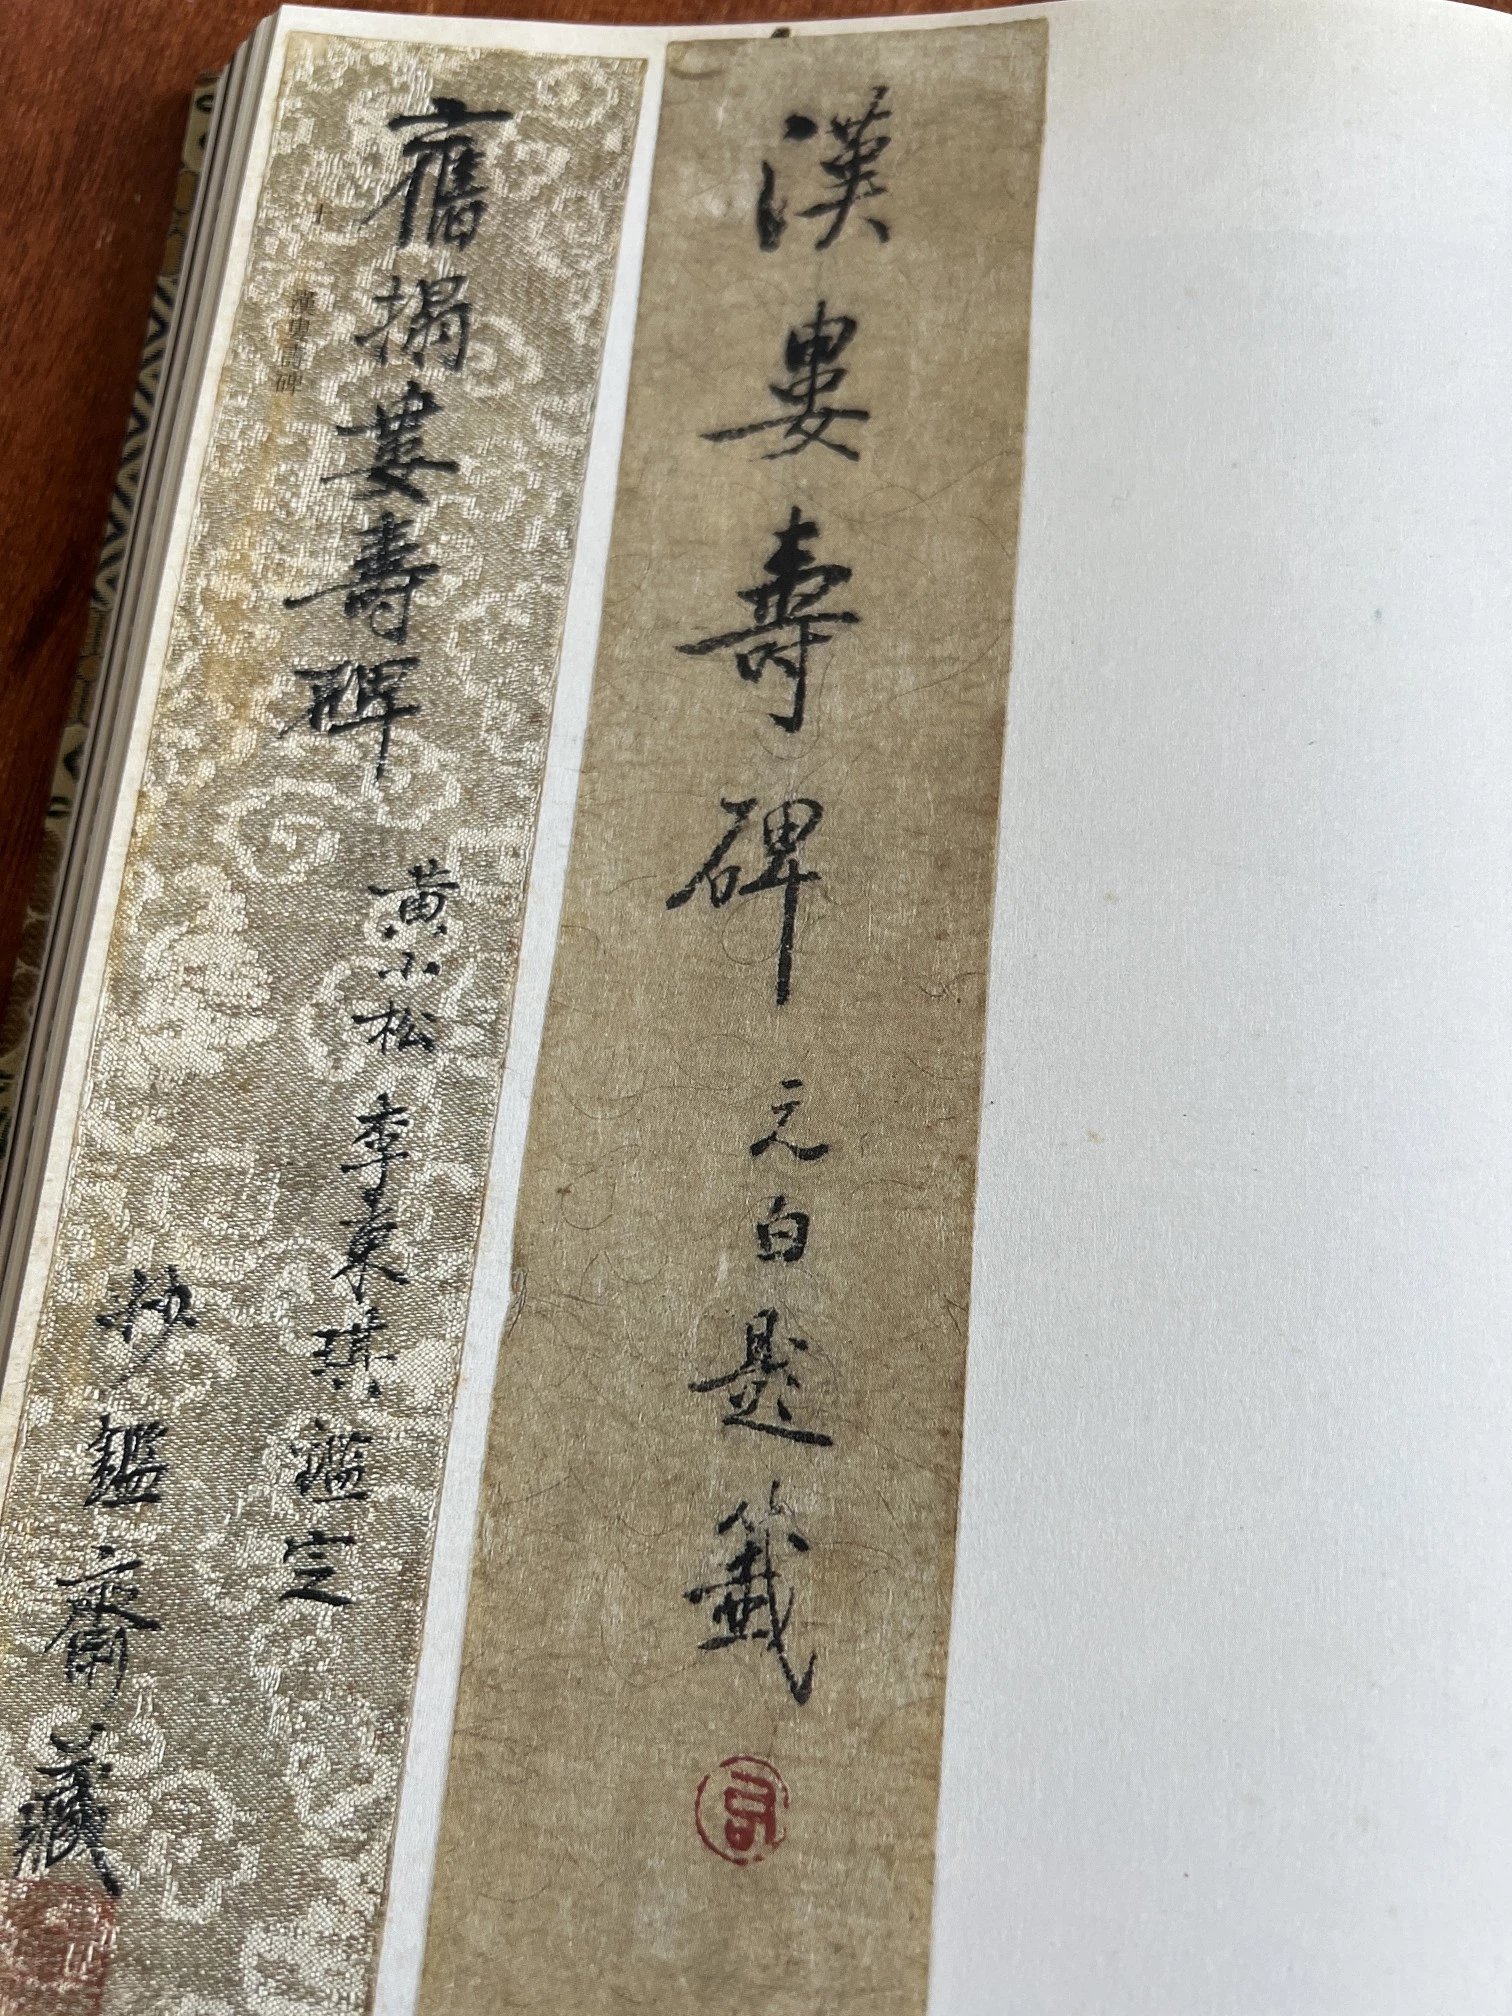 漢婁壽碑 元白題籤
舊搨婁壽碑 黃小松 李東琪鑑定
鑑齋藏
漢婁壽碑